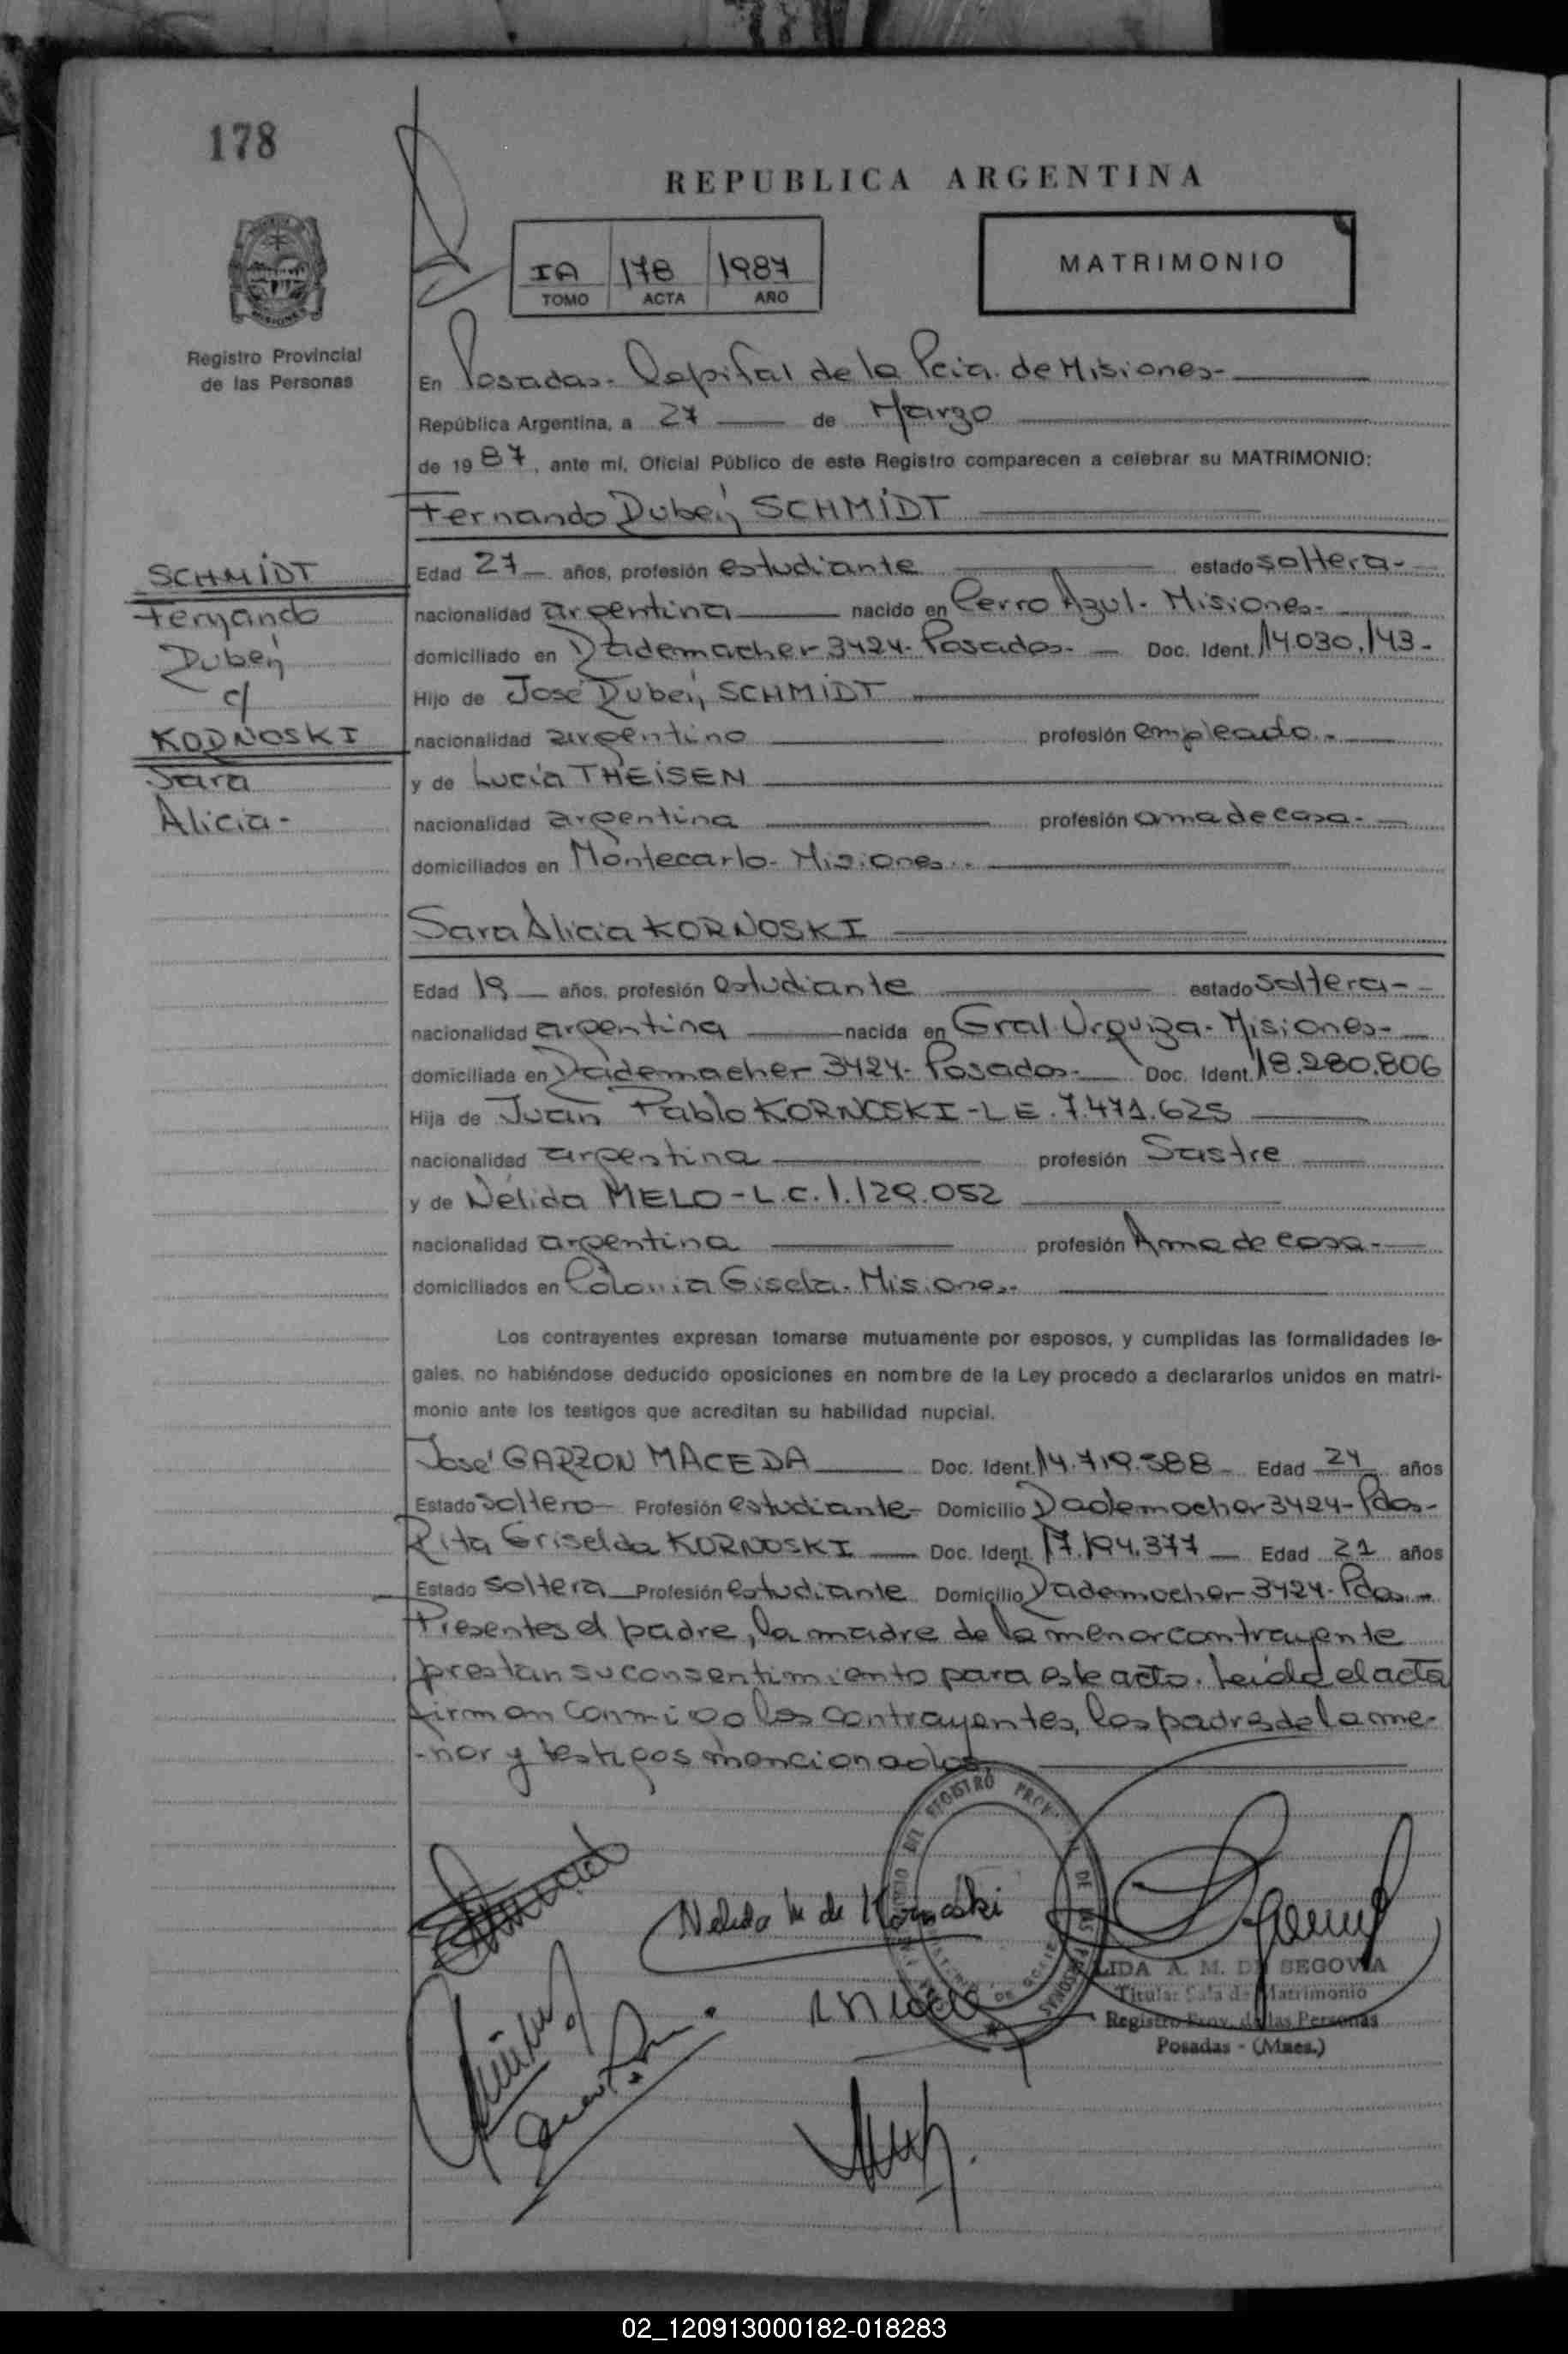 178
REPUBLICA ARGENTINA
IA 178 1987
TOMO ACTA AÑO
MATRIMONIO
MISIONES
Registro Provincial
de las Personas
En Posadas- Capital de la Pcia. de Misiones-
República Argentina, a 27 de Marzo
de 1987, ante mí, Oficial Público de este Registro comparecen a celebrar su MATRIMONIO:
Fernando Rubén SCHMIDT
SCHMIDT
Fernando
Rubén
c/
KORNOSKI
Sara
Alicia-
Edad 27 años, profesión estudiante estado soltera-
nacionalidad argentina nacido en Cerro Azul- Misiones-
domiciliado en Rademacher 3424- Posadas- Doc. Ident. 14.030.143-
Hijo de José Rubén SCHMIDT
nacionalidad argentino profesión empleado.-
y de Lucía THEISEN
nacionalidad argentina profesión ama de casa-
domiciliados en Montecarlo- Misiones.-
Sara Alicia KORNOSKI
Edad 19 años, profesión estudiante estado soltera-
nacionalidad argentina nacida en Gral. Urquiza- Misiones-
domiciliada en Rademacher 3424- Posadas- Doc. Ident. 18.280.806
Hija de Juan Pablo KORNOSKI-L.E. 7.471.625
nacionalidad argentina profesión Sastre
y de Nélida MELO-L.C. 1.129.052
nacionalidad argentina profesión Ama de casa-
domiciliados en Colonia Gisela- Misiones-
Los contrayentes expresan tomarse mutuamente por esposos, y cumplidas las formalidades le-
gales, no habiéndose deducido oposiciones en nombre de la Ley procedo a declararlos unidos en matri-
monio ante los testigos que acreditan su habilidad nupcial.
José GARZON MACEDA Doc. Ident. 14.719.588 Edad 24 años
Estado soltero Profesión estudiante- Domicilio Rademacher 3424-Pdas-
Rita Griselda KORNOSKI Doc. Ident. 17.194.377 Edad 21 años
Estado soltera Profesión estudiante Domicilio Rademacher 3424-Pdas.-
Presentes el padre, la madre de la menor contrayente
prestan su consentimiento para este acto. Leída el acta
firman conmigo los contrayentes, los padres de la me-
-nor y testigos mencionados
Nelida M de Kornoski
LIDA A. M. DE SEGOVIA
Titular Sala de Matrimonio
Registro Prov. de las Personas
Posadas - (Mnes.)
02_120913000182-018283